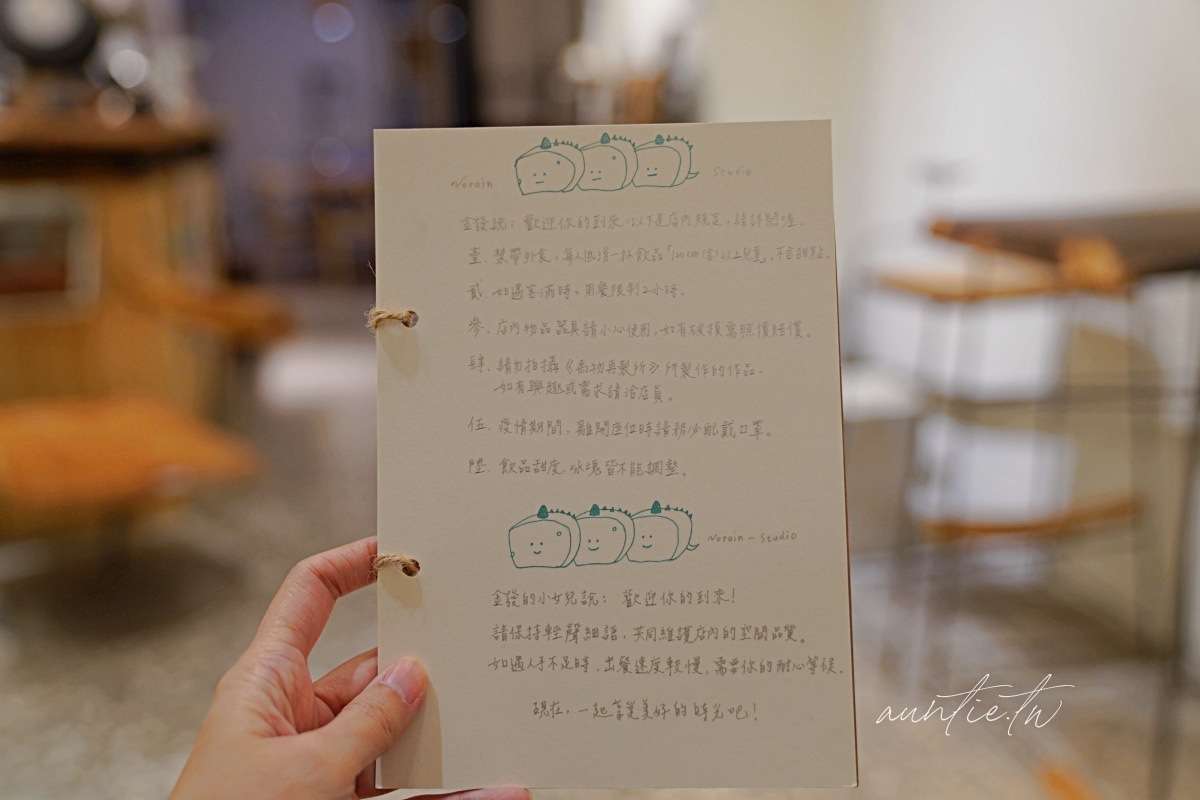 Norain Studio
金發說：歡迎你的到來，以下是店內規定，請詳閱喔。
壹. 禁帶外食，每人低消一杯飲品「120cm(含)以上兒童」，不含甜點。
貳. 如遇客滿時，用餐限制2小時。
參. 店內物品器具請小心使用，如有破損需照價賠償。
肆. 請勿拍攝《香物再製所》所製作的作品。
如有興趣或需求請洽店員。
伍. 疫情期間，離開座位時請務必配戴口罩。
陸. 飲品甜度、冰塊皆不能調整。
Norain - Studio
金發的小女兒說： 歡迎你的到來！
請保持輕聲細語，共同維護店內的空間品質。
如遇人手不足時，出餐速度較慢，需要你的耐心等候。
現在，一起享受美好的時光吧！
auntie.tw